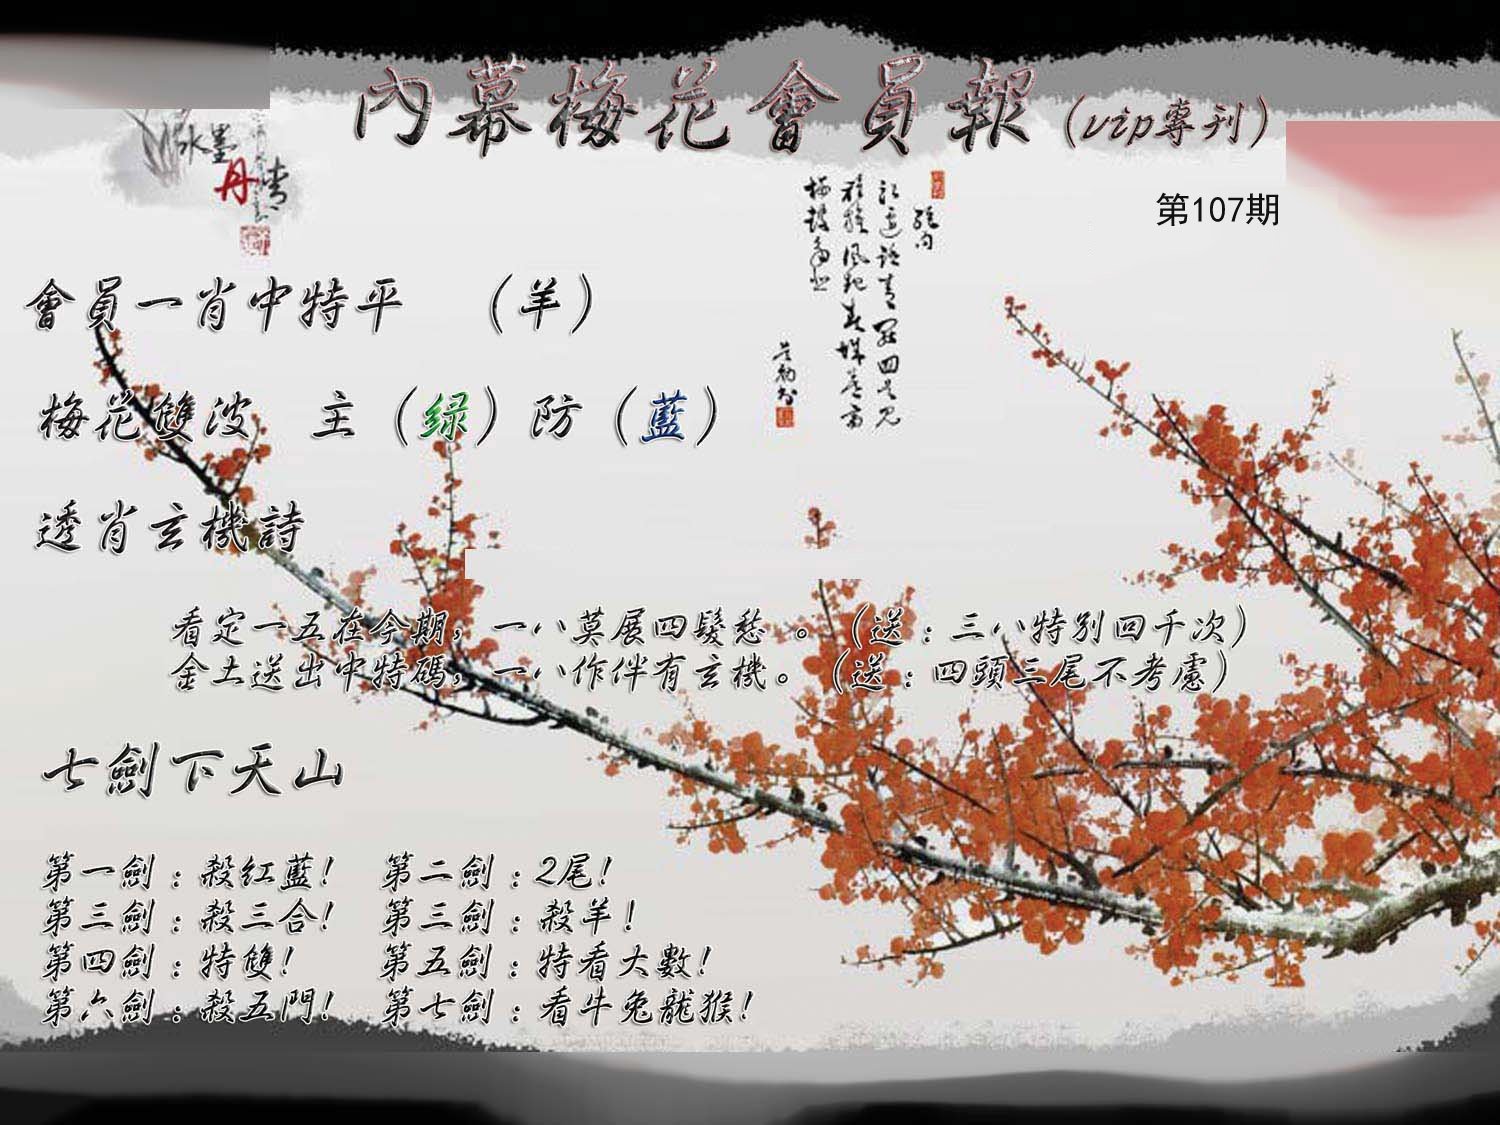 內幕梅花會員報(vip專刊)
水墨
丹青
第107期
會員一肖中特平 (羊)
梅花雙波 主(綠)防(藍)
透肖玄機詩
看定一五在今期,一八莫展四鬢愁。(送:三八特別回千次)
金土送出中特碼,一八作伴有玄機。(送:四頭三尾不考慮)
七劍下天山
第一劍:殺紅藍! 第二劍:2尾!
第三劍:殺三合! 第三劍:殺羊!
第四劍:特雙! 第五劍:特看大數!
第六劍:殺五門! 第七劍:看牛兔龍猴!